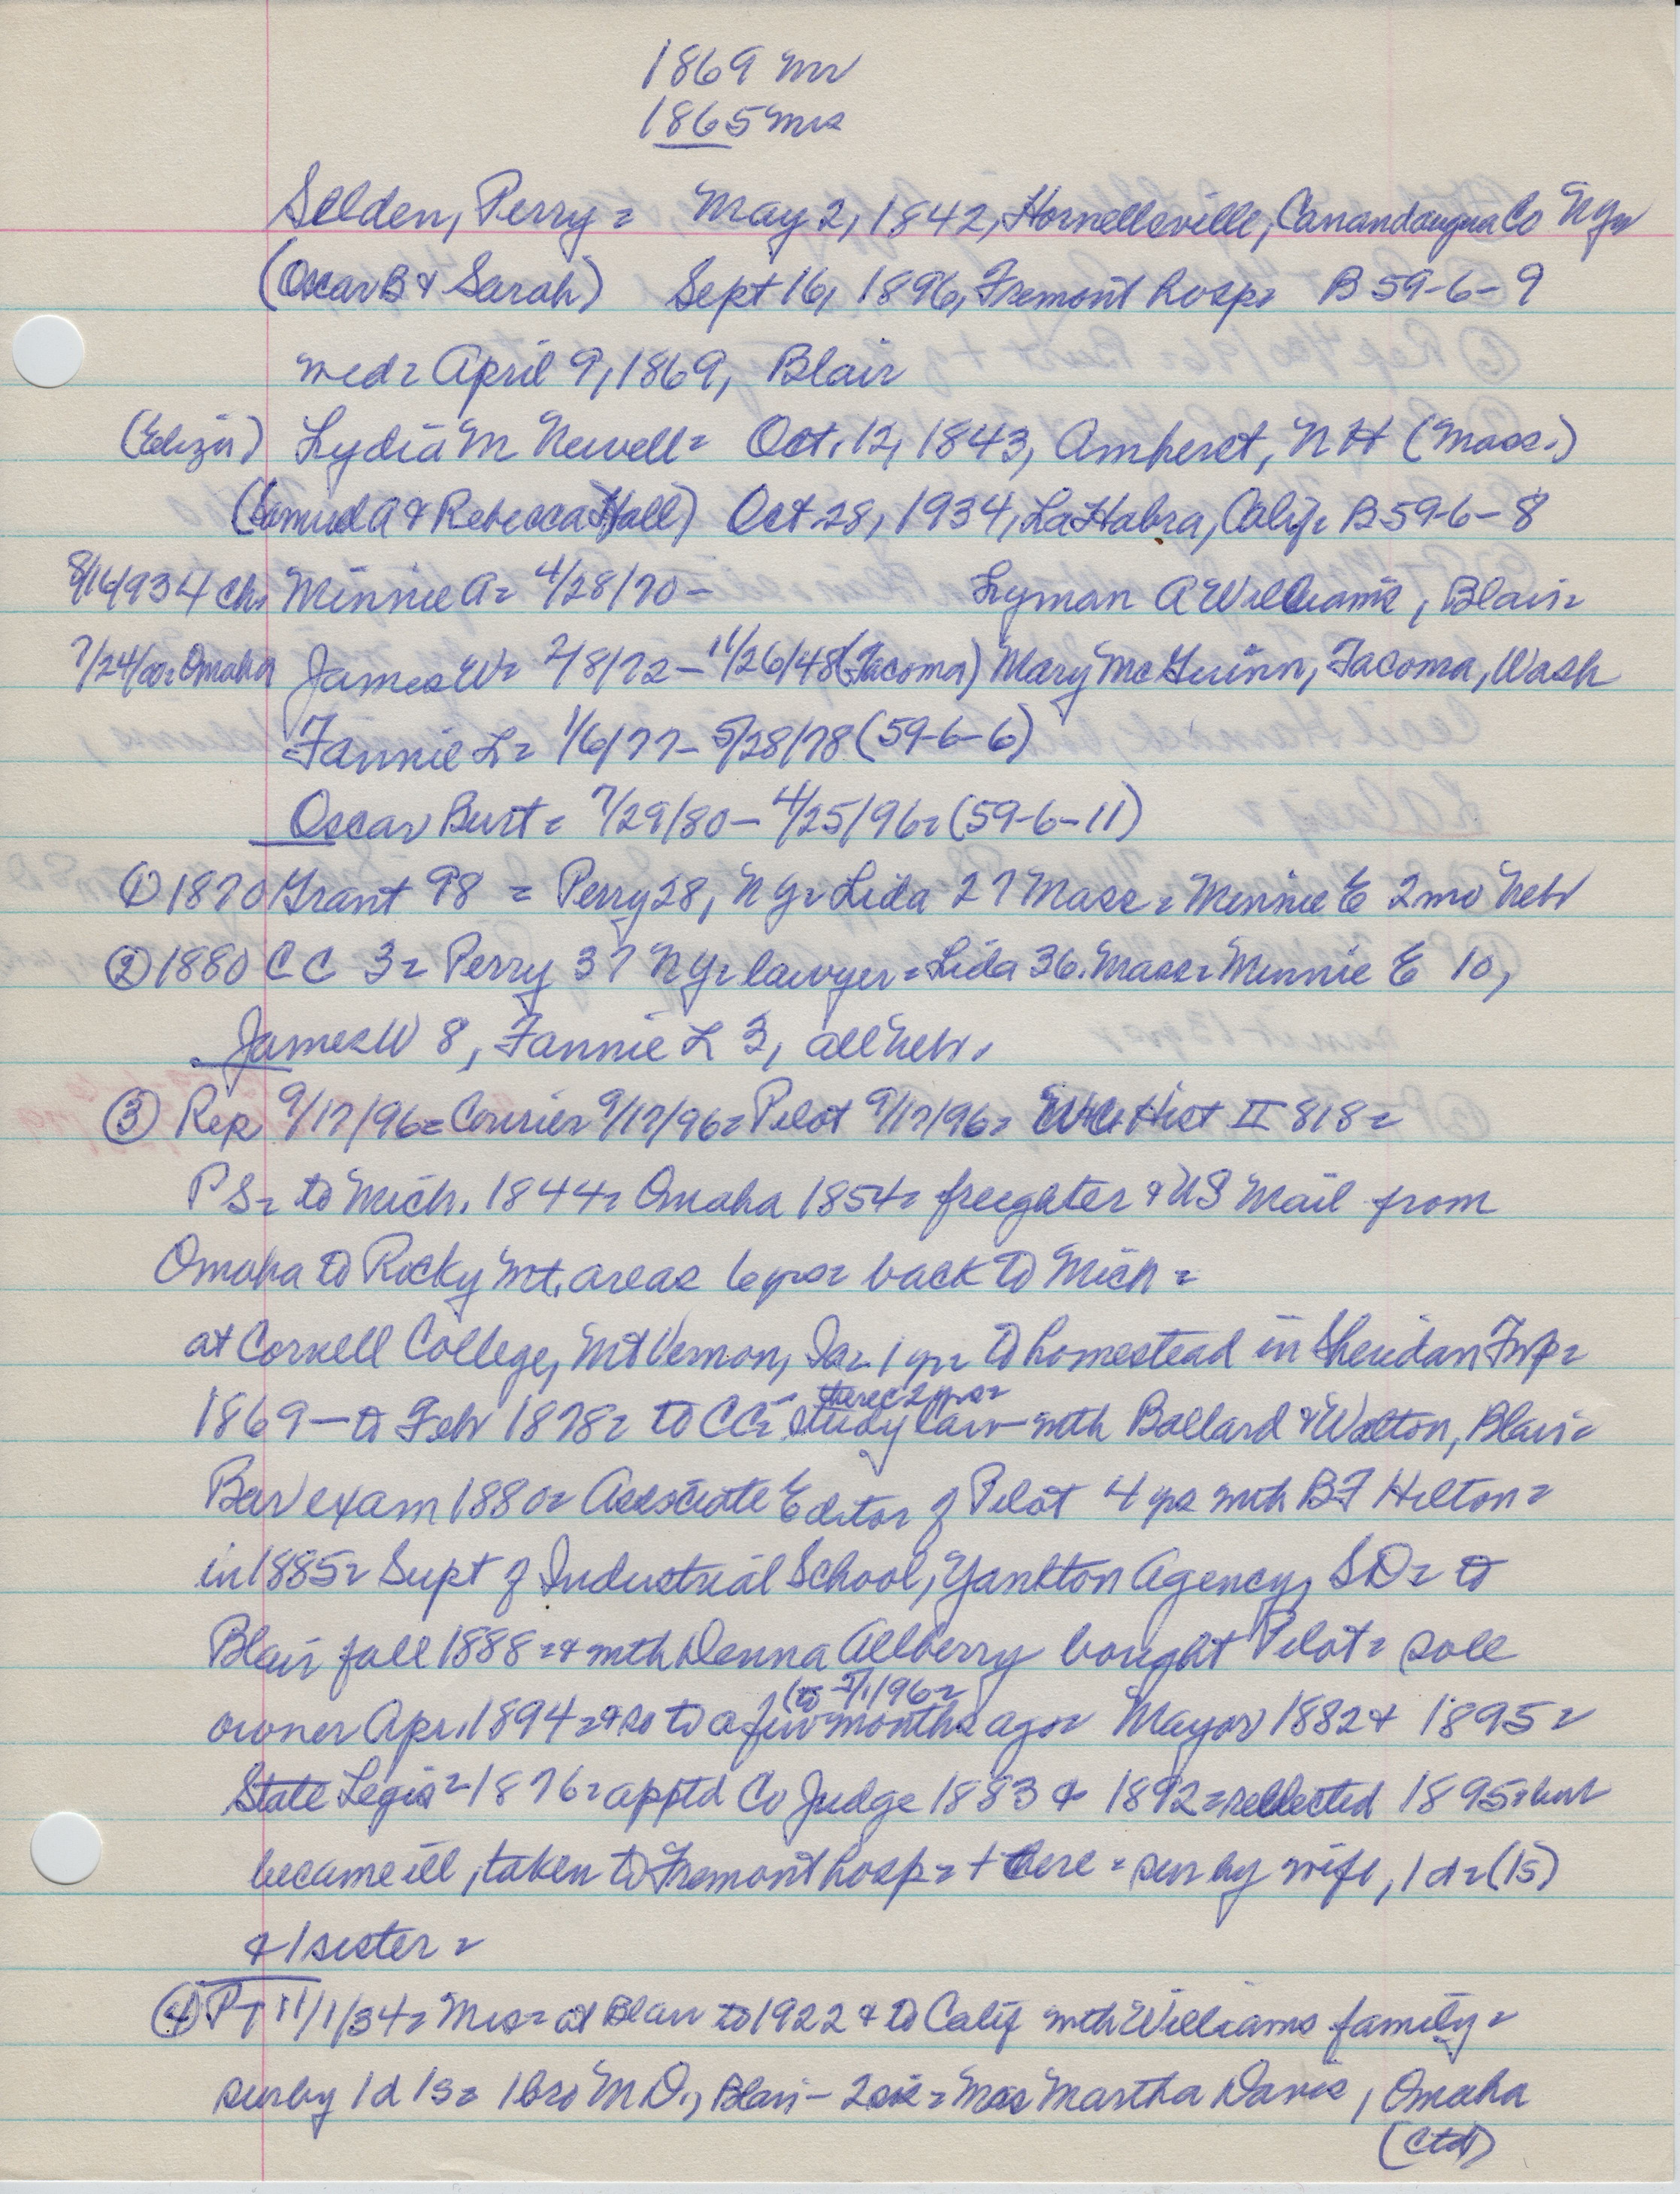 1869 Mr
1865 Mrs
Selden, Perry = May 2, 1842, Hornellsville, Canandaugua Co NY=
(Oscar B & Sarah) Sept 16, 1896, Fremont hosp= B 59-6-9
med= April 9, 1869, Blair
(Eliza) Lydia M Newell= Oct. 12, 1843, Amherst, NH (Mass.)
(Samuel A & Rebecca Hall) Oct 28, 1934, La Habra, Calif= B 59-6-8
Ch. Minnie A= 4/28/70 - Lyman A Williams, Blair=
7/24/00= Omaha James W= 2/8/72 - 11/26/48 (Tacoma) Mary McGuinn, Tacoma, Wash
Fannie L= 1/6/77 - 5/28/78 (59-6-6)
Oscar Burt= 7/29/80 - 4/25/96= (59-6-11)
① 1870 Grant 98 = Perry 28, NY= Lida 27 Mass= Minnie E 2mo Nebr
② 1880 CC 3= Perry 37 NY= lawyer= Lida 36. Mass= Minnie E 10,
James W 8, Fannie L 3, all Nebr.
③ Rep 9/17/96= Courier 9/17/96= Pilot 9/17/96= Hist II 818=
PS= to Mich. 1844= Omaha 1854= freighter & US Mail from
Omaha to Rocky Mt. areas 6 yrs= back to Mich=
at Cornell College, Mt Vernon, Ia= 1 yr= to homestead in Sheridan Twp=
there 2 yrs=
1869 - to Feb 1878= to CC= study law with Ballard & Walton, Blair=
Bar exam 1880= Associate Editor of Pilot 4 yrs with BF Hilton=
in 1885= Supt of Industrial School, Yankton Agency, SD= to
Blair fall 1888= & with Denna Allberry bought Pilot= sole
owner Apr. 1894= & so to a few months ago= Mayor 1882 & 1895=
State Legis= 1876= apptd Co Judge 1883 & 1892= reelected 1895= but
became ill, taken to Fremont hosp= + there= sur by wife, 1 d= (1s)
& 1 sister=
④ PT 11/1/34= Mrs= at Blair to 1922 & to Calif with Williams family=
surby 1 d 1s= 1 bro M D., Blair - 2 sis= Mrs Martha Davis, Omaha
(ctd)